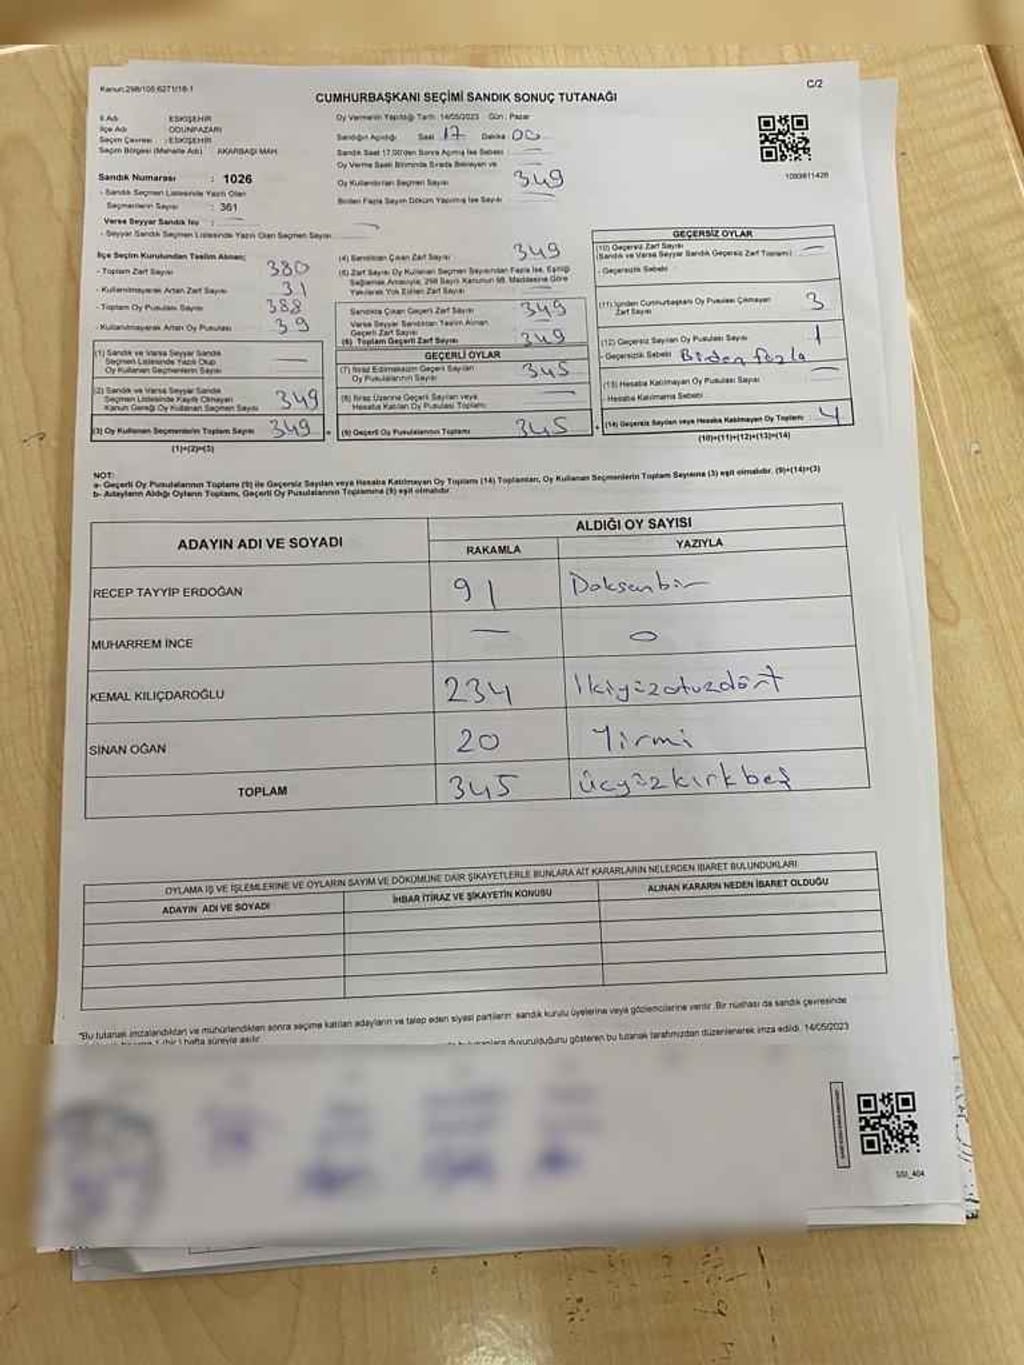 Kanun:298/105,6271/18-1
C/2
CUMHURBAŞKANI SEÇİMİ SANDIK SONUÇ TUTANAĞI
İl Adı : ESKİŞEHİR
İlçe Adı : ODUNPAZARI
Seçim Çevresi : ESKİŞEHİR
Seçim Bölgesi (Mahalle Adı) : AKARBAŞI MAH.
Sandık Numarası : 1026
- Sandık Seçmen Listesinde Yazılı Olan
Seçmenlerin Sayısı : 361
Varsa Seyyar Sandık No : —
- Seyyar Sandık Seçmen Listesinde Yazılı Olan Seçmen Sayısı —
Oy Vermenin Yapıldığı Tarih: 14/05/2023 Gün: Pazar
Sandığın Açıldığı Saat 17 Dakika 00
Sandık Saat 17.00'den Sonra Açılmış İse Sebebi : —
Oy Verme Saati Bitiminde Sırada Bekleyen ve —
Oy Kullandırılan Seçmen Sayısı 349
Birden Fazla Sayım Döküm Yapılmış İse Sayısı —
1093611426
İlçe Seçim Kurulundan Teslim Alınan;
- Toplam Zarf Sayısı 380
- Kullanılmayarak Artan Zarf Sayısı 31
- Toplam Oy Pusulası Sayısı 388
- Kullanılmayarak Artan Oy Pusulası 39
(1) Sandık ve Varsa Seyyar Sandık
Seçmen Listesinde Yazılı Olup
Oy Kullanan Seçmenlerin Sayısı —
(2) Sandık ve Varsa Seyyar Sandık
Seçmen Listesinde Kayıtlı Olmayan
Kanun Gereği Oy Kullanan Seçmen Sayısı 349
(3) Oy Kullanan Seçmenlerin Toplam Sayısı 349
(1)+(2)=(3)
(4) Sandıktan Çıkan Zarf Sayısı 349
(5) Zarf Sayısı Oy Kullanan Seçmen Sayısından Fazla İse, Eşitliği
Sağlamak Amacıyla, 298 Sayılı Kanunun 98. Maddesine Göre
Yakılarak Yok Edilen Zarf Sayısı —
Sandıkta Çıkan Geçerli Zarf Sayısı 349
Varsa Seyyar Sandıktan Teslim Alınan
Geçerli Zarf Sayısı —
(6) Toplam Geçerli Zarf Sayısı 349
GEÇERLİ OYLAR
(7) İtiraz Edilmeksizin Geçerli Sayılan
Oy Pusulalarının Sayısı 345
(8) İtiraz Üzerine Geçerli Sayılan veya
Hesaba Katılan Oy Pusulası Toplamı —
(9) Geçerli Oy Pusulalarının Toplamı 345
GEÇERSİZ OYLAR
(10) Geçersiz Zarf Sayısı —
(Sandık ve Varsa Seyyar Sandık Geçersiz Zarf Toplamı)
- Geçersizlik Sebebi :
(11) İçinden Cumhurbaşkanı Oy Pusulası Çıkmayan
Zarf Sayısı 3
(12) Geçersiz Sayılan Oy Pusulası Sayısı 1
- Geçersizlik Sebebi : Birden fazla
(13) Hesaba Katılmayan Oy Pusulası Sayısı —
- Hesaba Katılmama Sebebi :
(14) Geçersiz Sayılan veya Hesaba Katılmayan Oy Toplamı 4
(10)+(11)+(12)+(13)=(14)
NOT:
a- Geçerli Oy Pusulalarının Toplamı (9) ile Geçersiz Sayılan veya Hesaba Katılmayan Oy Toplamı (14) Toplamları, Oy Kullanan Seçmenlerin Toplam Sayısına (3) eşit olmalıdır. (9)+(14)=(3)
b- Adayların Aldığı Oyların Toplamı, Geçerli Oy Pusulalarının Toplamına (9) eşit olmalıdır.
ADAYIN ADI VE SOYADI
ALDIĞI OY SAYISI
RAKAMLA YAZIYLA
RECEP TAYYİP ERDOĞAN 91 Doksanbir
MUHARREM İNCE — 0
KEMAL KILIÇDAROĞLU 234 İkiyüzotuzdört
SİNAN OĞAN 20 Yirmi
TOPLAM 345 Üçyüzkırkbeş
OYLAMA İŞ VE İŞLEMLERİNE VE OYLARIN SAYIM VE DÖKÜMÜNE DAİR ŞİKAYETLERLE BUNLARA AİT KARARLARIN NELERDEN İBARET BULUNDUKLARI
ADAYIN ADI VE SOYADI
İHBAR İTİRAZ VE ŞİKAYETİN KONUSU
ALINAN KARARIN NEDEN İBARET OLDUĞU
"Bu tutanak imzalandıktan ve mühürlendikten sonra seçime katılan adayların ve talep eden siyasi partilerin sandık kurulu üyelerine veya gözlemcilerine verilir. Bir nüshası da sandık çevresinde
1 (bir) hafta süreyle asılır.
duyurulduğunu gösteren bu tutanak tarafımızdan düzenlenerek imza edildi. 14/05/2023
SSI_404